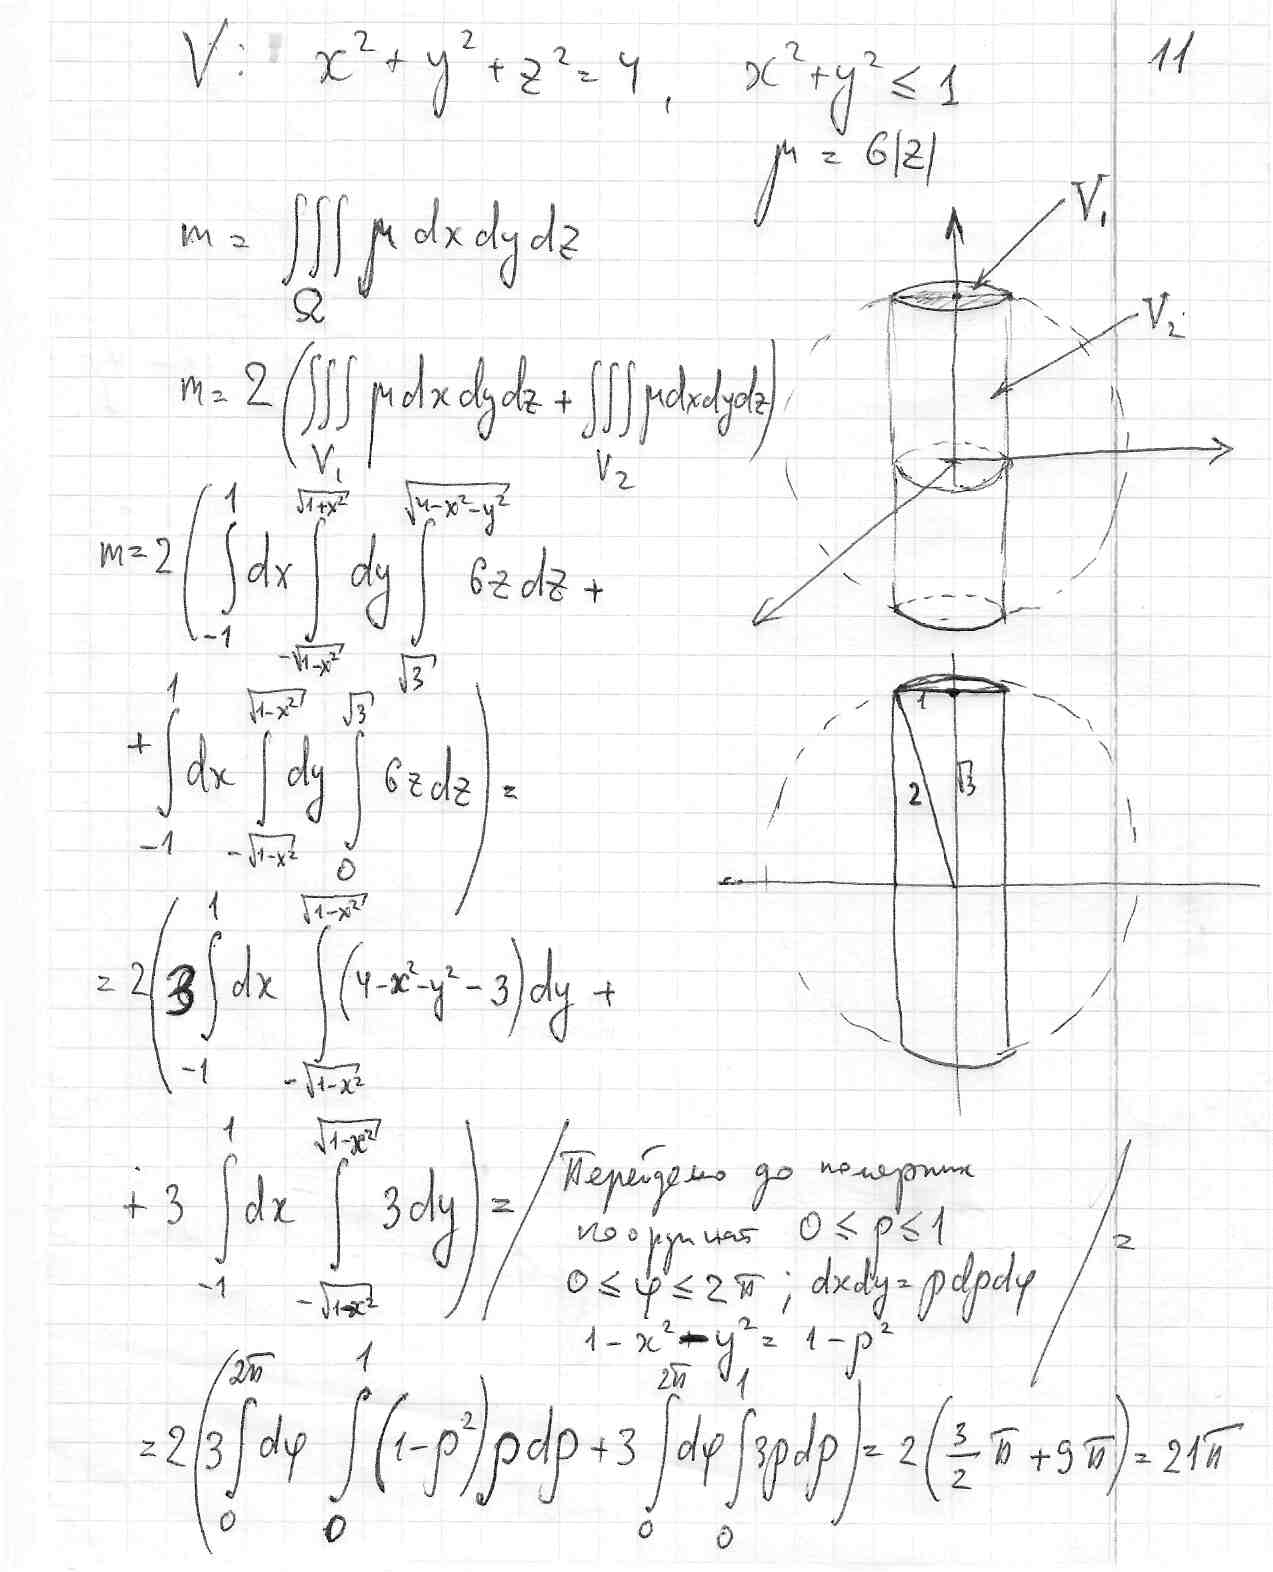 V: x² + y² + z² = 4, x² + y² ≤ 1
11
μ = 6|z|
m = ∭_Ω μ dx dy dz
V₁
V₂
m = 2 (∭_{V₁} μ dx dy dz + ∭_{V₂} μ dx dy dz)
m = 2 (∫_{-1}^{1} dx ∫_{-√(1-x²)}^{√(1+x²)} dy ∫_{√3}^{√(4-x²-y²)} 6z dz +
+ ∫_{-1}^{1} dx ∫_{-√(1-x²)}^{√(1-x²)} dy ∫_{0}^{√3} 6z dz) =
1
2
√3
= 2 (3 ∫_{-1}^{1} dx ∫_{-√(1-x²)}^{√(1-x²)} (4-x²-y²-3) dy +
+ 3 ∫_{-1}^{1} dx ∫_{-√(1-x²)}^{√(1-x²)} 3 dy) = /
Перейдемо до полярних
координат 0 ≤ ρ ≤ 1
0 ≤ φ ≤ 2π ; dxdy = ρdρdφ
1 - x² - y² = 1 - ρ²
/ =
= 2 (3 ∫_{0}^{2π} dφ ∫_{0}^{1} (1-ρ²) ρ dρ + 3 ∫_{0}^{2π} dφ ∫_{0}^{1} 3ρ dρ) = 2 (3/2 π + 9π) = 21π